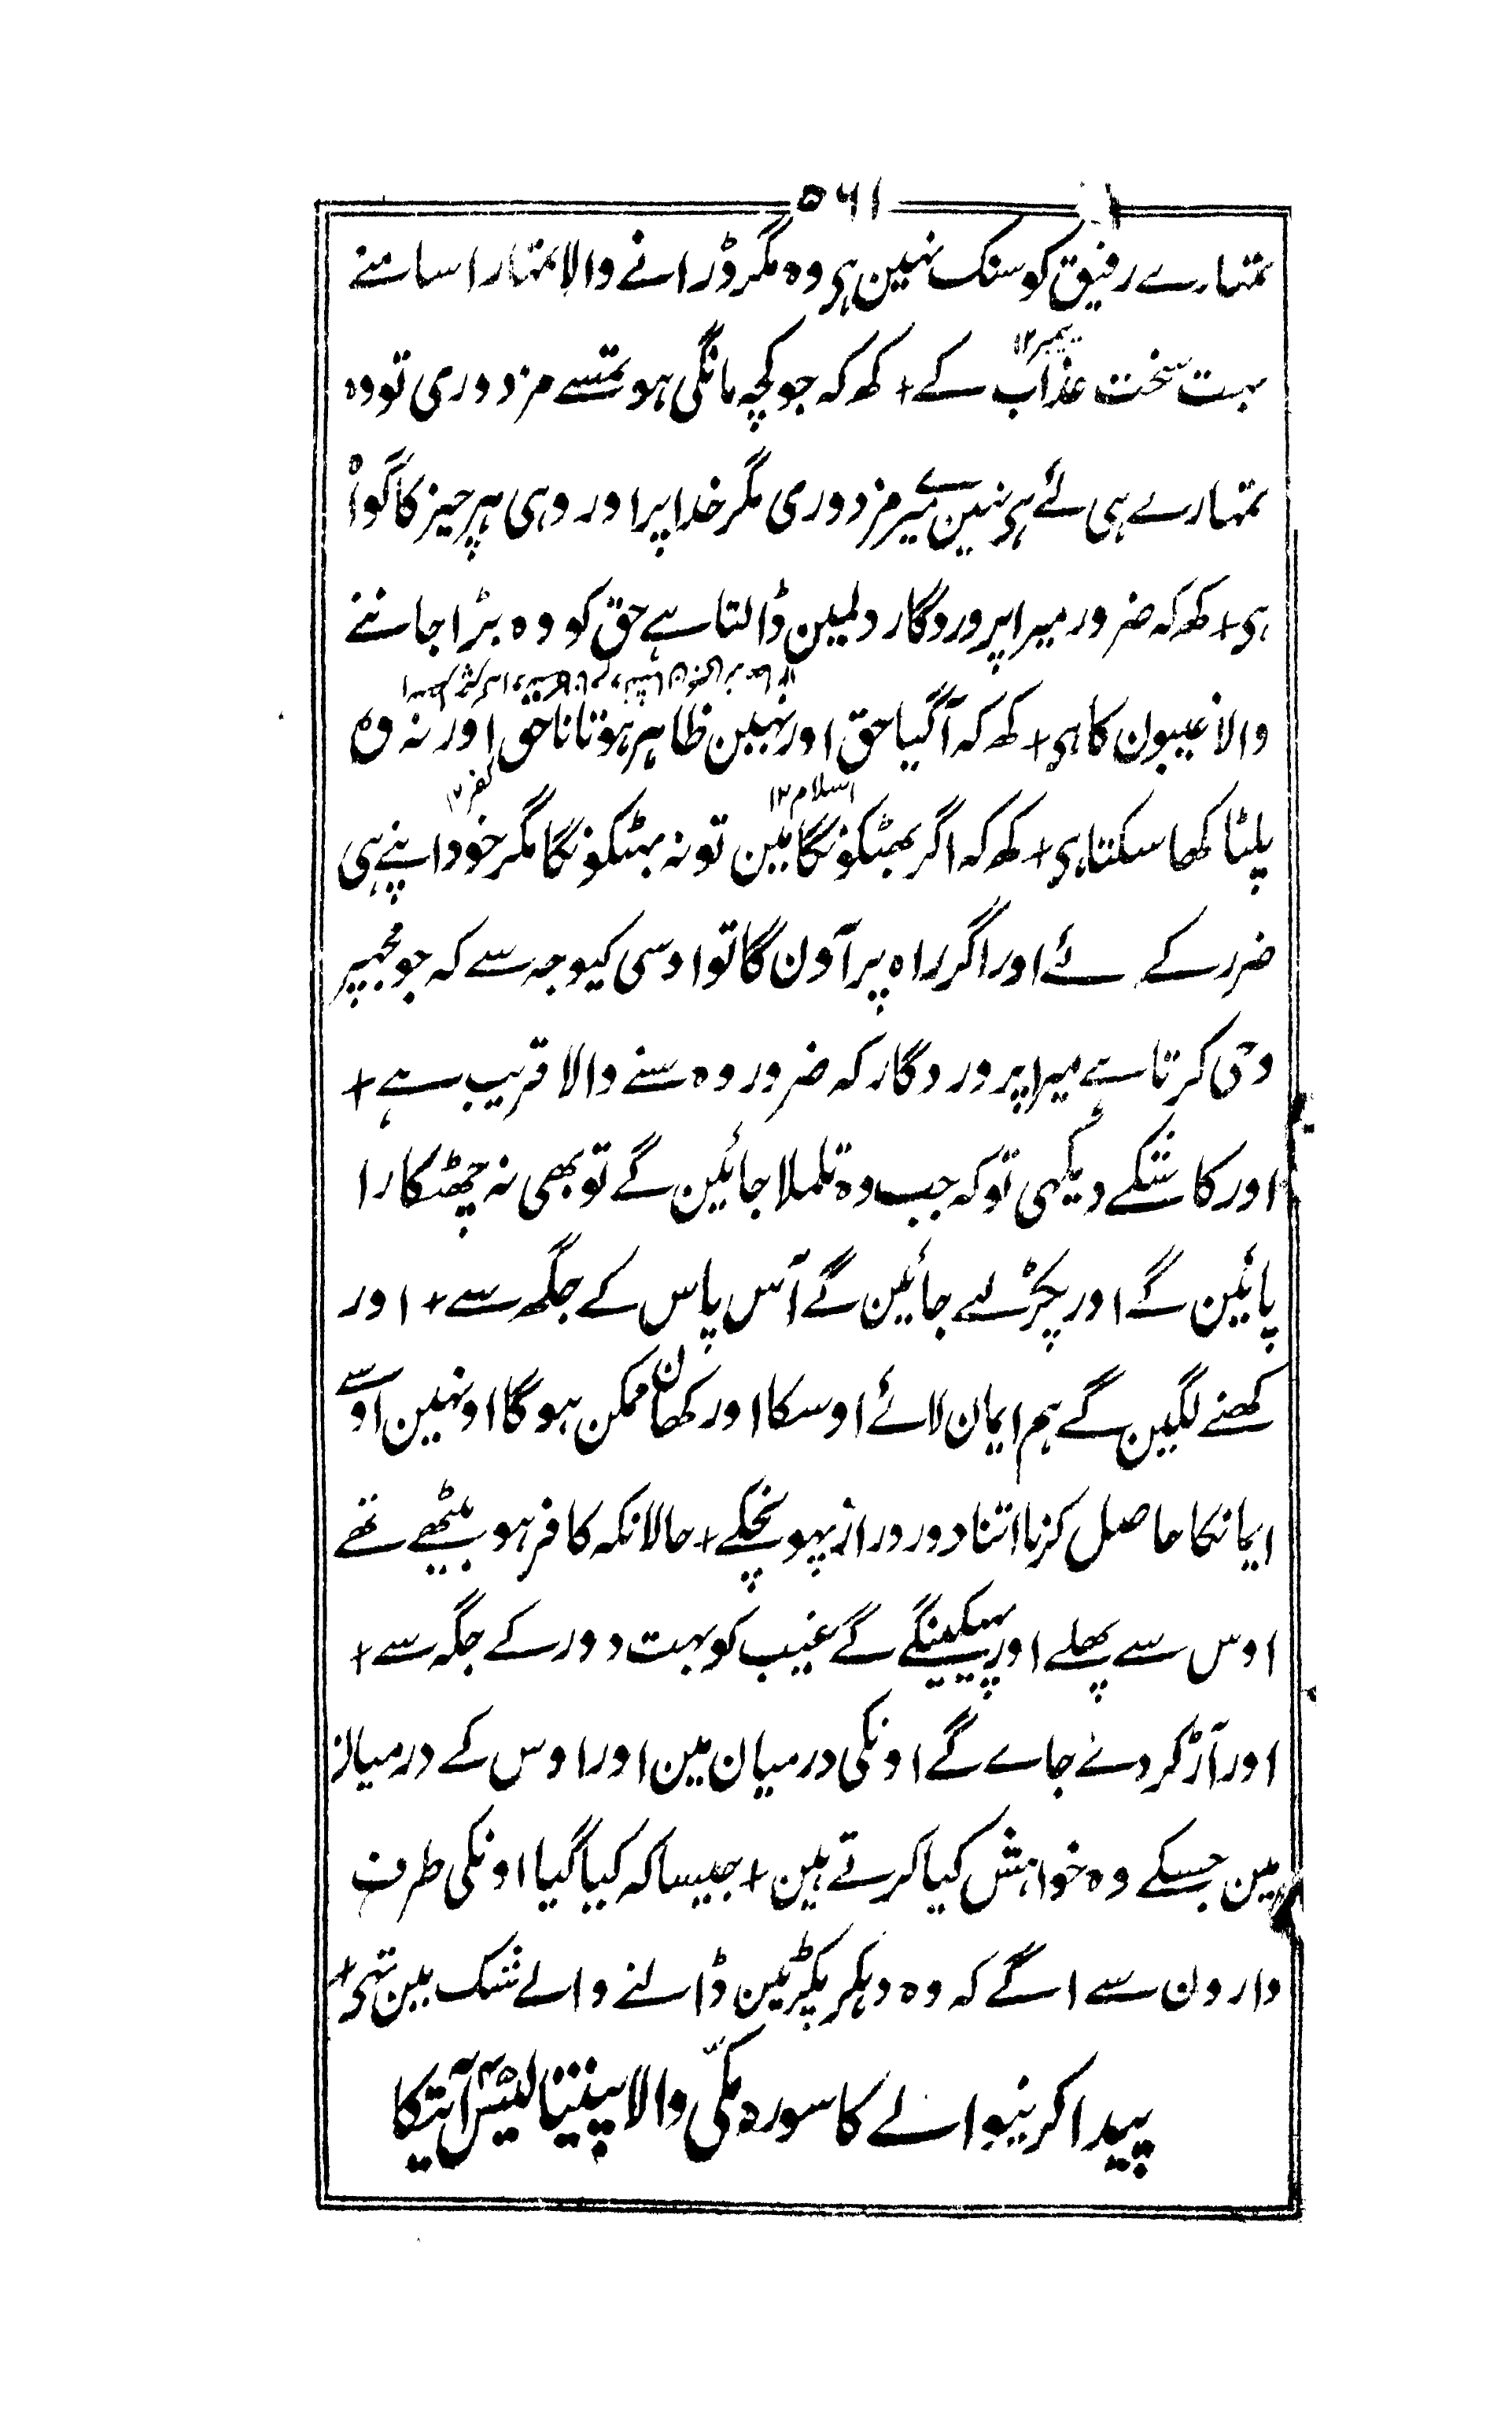 ۵۶۱
تمتہارے رفیق کو سنک نہین ہی وہ مگر ڈرانے والا تمتہارا سامنے
بہت سخت عذاب کے + کھ کہ جو کچہ مانگی ہو تمسے مزدوری تو وہ
تمہارے ہی لئے ہی نہین ہے میرے مزدوری مگر خدا پر اور وہی ہر چیز کا گواہ
ہی + کھ کہ ضرور میرا پروردگار دلمین ڈالتا ہے حق کو وہ بڑا جاننے
والا غیبون کا ہی + کھ کہ آگیا حق اور نہین ظاہر ہوتا ناحق اور نہ وہ
اسلام ۱۲ کفر ۱۲
پلٹا کھا سکتا ہی + کھ کہ اگر بھٹکونگا مین تو نہ بہٹکونگا مگر خود اپنے ہی
ضرر کے لئے اور اگر راہ پر آون گا تو اوسی کیوجہ سے کہ جو مجہپر
وحی کرتا ہے میرا پروردگار کہ ضرور وہ سننے والا قریب ہے +
اور کاشکے دیکہی تو کہ جب وہ تلملا جائین گے تو بھی نہ چھٹکارا
پائین گے اور پکڑ لئے جائین گے آس پاس کے جگہ سے + اور
کھنے لگین گے ہم ایمان لائے اوسکا اور کھان ممکن ہوگا اونہین اوسے
ایمانکا حاصل کرنا اتنا دور دراز پہونچکے + حالانکہ کافر ہو بیٹھے تھے
اوس سے پھلے اور پہیکینگے گے غیب کو بہت دور کے جگہ سے +
اور آڑ کر دے جاے گے اونکی درمیان مین اور اوس کے درمیان
مین جسکے وہ خواہش کیا کرتے ہین + جیسا کہ کیا گیا اونکی طرف
دارون سے اگے کہ وہ دہکر پکڑمین ڈالنے والے شک مین تہی +
پیدا کرنیوالے کا سورہ مکّی والا پینتالیس ۴۵ آیتکا